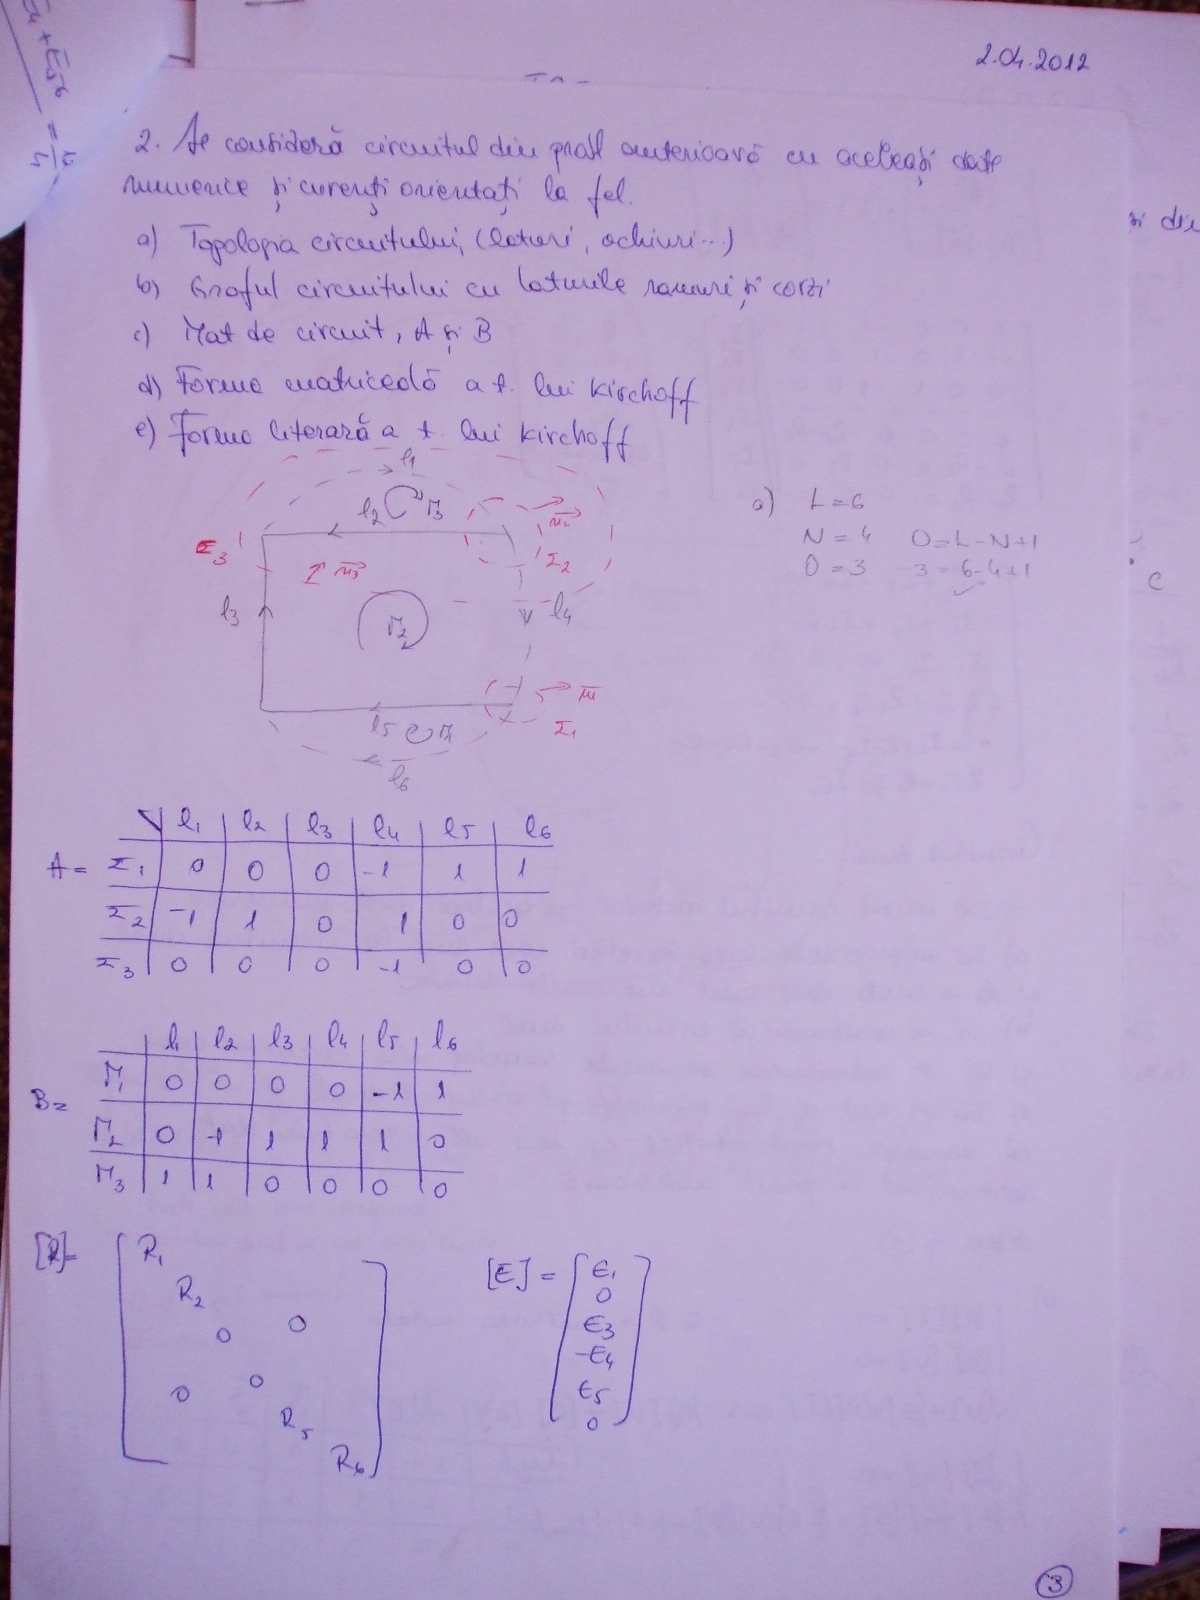 2.04.2012
2. Se consideră circuitul din probl anterioară cu aceleași date
numerice și curenți orientați la fel.
a) Topologia circuitului, (laturi, ochiuri...)
b) Graful circuitului cu laturile ramuri și corzi
c) Mat de circuit, A și B
d) Forma matriceală a t. lui Kirchoff
e) Forma literară a t. lui Kirchoff
l1
l2 Γ3
n2
Σ3 n3 Σ2
l3 Γ2 l4
n1
l5 Γ1 Σ1
l6
a) L=6
N=4 O=L-N+1
O=3 3=6-4+1
l1 l2 l3 l4 l5 l6
A= Σ1 0 0 0 -1 1 1
Σ2 -1 1 0 1 0 0
Σ3 0 0 0 -1 0 0
l1 l2 l3 l4 l5 l6
Γ1 0 0 0 0 -1 1
B=
Γ2 0 -1 1 1 1 0
Γ3 1 1 0 0 0 0
[R]= R1
R2
0 0
0 0
R5
R6
[E]= E1
0
E3
-E4
E5
0
3